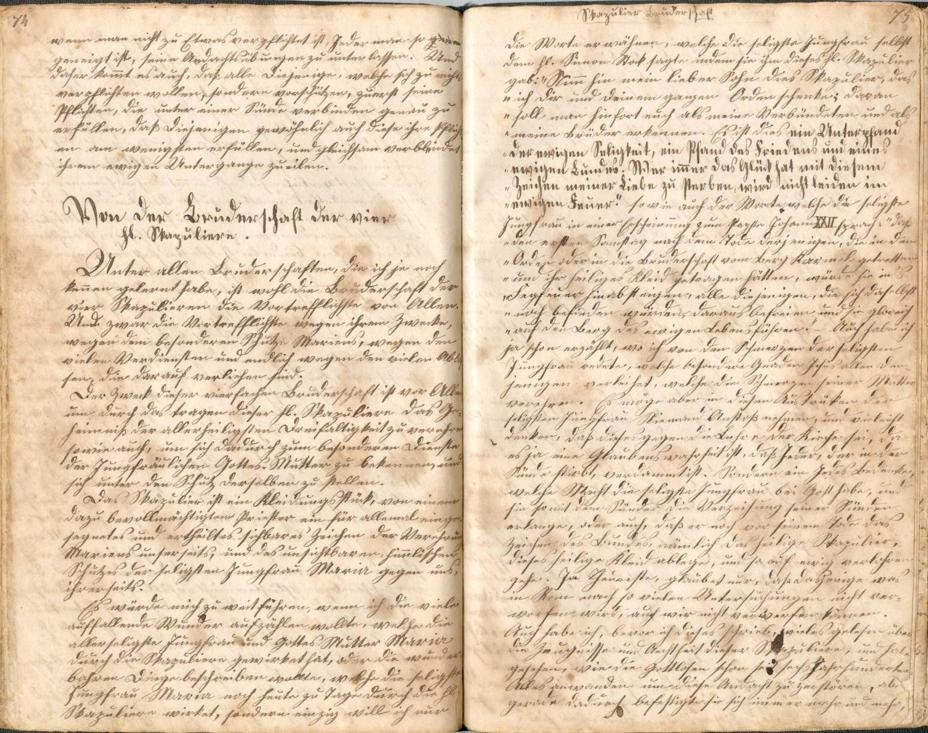 74
wenn man nicht zu Etwas verpflichtet ist. Jeder man so gerne
geneigt ist, seine Andachtsübungen zu unterlassen. Und
daher kommt es auch, daß alle Diejenige, welche sich zu nichts
verpflichten wollen, sondern vorschützen, zuerst seine
Pflichten, die unter einer Sünde verbinden genau zu
erfüllen, daß Diejenigen gewöhnlich auch diese ihre Pflich
en am wenigsten erfüllen, und gleichsam verblendet
ihrem ewigen Untergange zueilen.
Von der Bruderschaft der vier
hl. Skapuliere.
Unter allen Bruderschaften, die ich je noch
kennen gelernt habe, ist wohl die Bruderschaft der
vier Skapulieren die Vortrefflichste von Allen.
Und zwar die Vortrefflichste wegen ihrem Zwecke,
wegen dem besonderen Schutz Mariens, wegen den
vielen Verdiensten und endlich wegen den vielen Abläs
sen, die darauf verliehen sind.
Der Zweck dieser vierfachen Bruderschaft ist vor Allem
um durch das tragen dieser hl. Skapuliere das Ge
heimniß der allerheiligsten Dreifaltigkeit zu verehren
sowie auch, um sich dadurch zum besonderen Dienste
der Jungfräulichen Gottes-Mutter zu bekennen, und
sich unter den Schutz derselben zu stellen.
Das Skapulier ist ein Kleidungsstück, von einem
dazu bevollmächtigten Priester ein für allemal einge
segnetes und ertheiltes sichbares Zeichen der Verehrung
Mariens unserseits, und des unsichtbaren, himmlischen
Schutzes der seligsten Jungfrau Maria gegen uns,
ihrerseits.
Es würde mich zu weit führen, wenn ich die viele
auffallende Wunder aufzählen wollte, welche die
allerseligste Jungfrau und Gottes Mutter Maria
durch die Skapuliere gewirket hat, oder die wunder
baren Dinge beschreiben wollte, welche die seligste
Jungfrau Maria noch heute zu Tage durch die hl.
Skapuliere wirket, sondern einzig will ich nur
Skapulier Bruderschaft
75
die Worte erwähnen, welche die seligste Jungfrau selbst
dem hl. Simon Stok sagte indem sie ihm dieses hl. Skapulier
gab: "Nimm hin mein lieber Sohn dies Skapulier, das
"ich Dir und deinem ganzen Orden schenke; daran
"soll man hinfort euch als meine Verbündeten und als
"meine Brüder erkennen. Es ist dies ein Unterpfand
"der ewigen Seligkeit, ein Pfand des Friedens und eines
"ewigen Bundes. Wer immer das Glück hat mit diesem
"Zeichen meiner Liebe zu sterben, wird nicht leiden im
"ewigen Feuer" sowie auch der Worte, welche die seligste
Jungfrau in einer Erscheinung zum Papste Johann XXII sprach:
"den ersten Samstag nach dem Tode derjenigen, die in den
"Orden oder in die Bruderschaft vom Berg Karmel getretten
"und ihr heiliges Kleid getragen hätten, würde sie in's
"Fegfeuer hinabsteigen, alle diejenigen, die sich daselbst
"noch befinden würden, daraus befreien und sie
"auf den Berg des ewigen Lebens führen. Auch habe ich
ja schon erzählt, wo ich von den Schmerzen der seligsten
Jungfrau redete, welche besondere Gnaden Jesus allen den
jenigen verleihet, welche die Schmerzen seiner Mutter
verehren. Es möge aber in diesen Ausdrüken der
seligsten Jungfrau Niemand Anstoß nehmen, und vielleicht
denken, daß dieses gegen die Lehre der Kirche sei, da
es ja eine Glaubenswahrheit ist, daß Jeder, der in der
Sünde stirbt, verdammt ist. Sondern ein Jedes bedenke
welche Macht die seligste Jungfrau bei Gott habe, und
sie somit dem Sünder die Verzeihung seiner Sünden
erlange, oder auch, daß er noch vor seinem Tode das
Zeichen des Bundes, nämlich das heilige Skapulier,
dieses heilige Kleid ablege, und so auf ewig verlohren
gehe. Ja Theuerste, glaubet nur, daß dasjenige was
in Rom nach so vielen Untersuchungen nicht ver
worfen wird, auch wir nicht verwerfen können.
Auch habe ich, bevor ich dieses schrieb, vieles gelesen über
die Zeugnisse und Aechtheit dieser Skapuliere, und habe
gesehen, wie die Gottlosen schon seit sechs Jahrhunderten
Alles anwanden um diese Andacht zu zerstören, aber
gerade dadurch befestigte sie sich immer mehr und mehr,